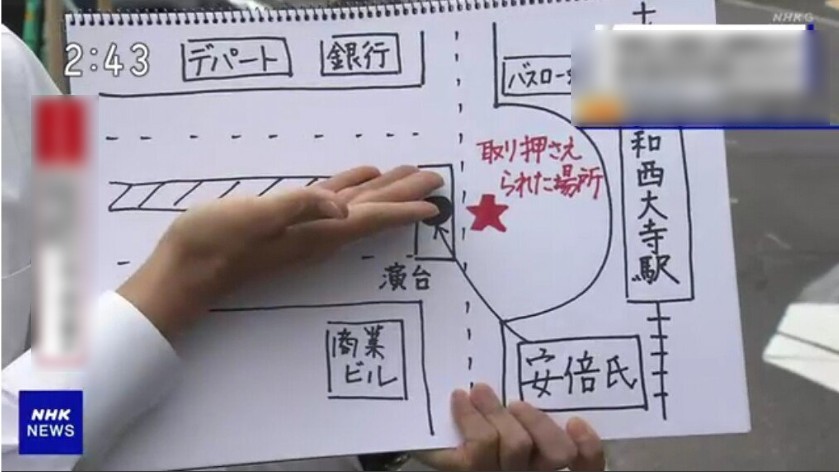 NHK G
2:43
デパート
銀行
バスロー
取り押さえ
られた場所
和西大寺駅
演台
商業
ビル
安倍氏
NHK
NEWS